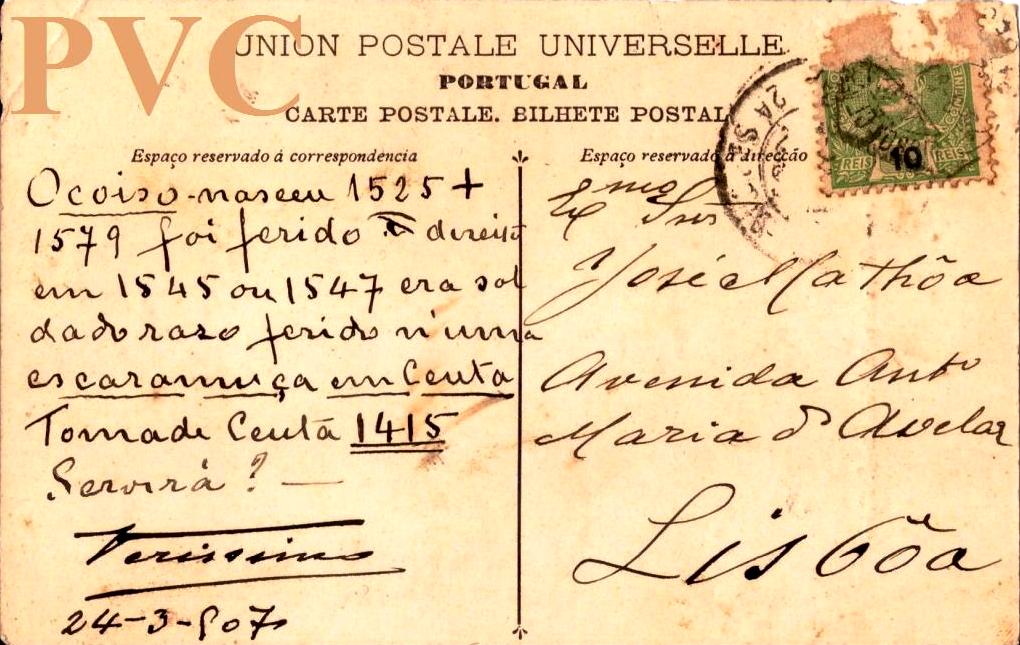 PVC
UNION POSTALE UNIVERSELLE
PORTUGAL
CARTE POSTALE. BILHETE POSTAL
Espaço reservado á correspondencia
O coiso nasceu 1525 +
1579 foi ferido direito
em 1545 ou 1547 era sol
dado razo ferido n'uma
escaramuça em Ceuta
Tomada de Ceuta 1415
Servirá? —
Verissimo
24-3-907
Espaço reservado á direcção
Exmo Snr
José Mathôa
Avenida Anto
Maria d'Avelar
Lisbôa
REIS 10 REIS